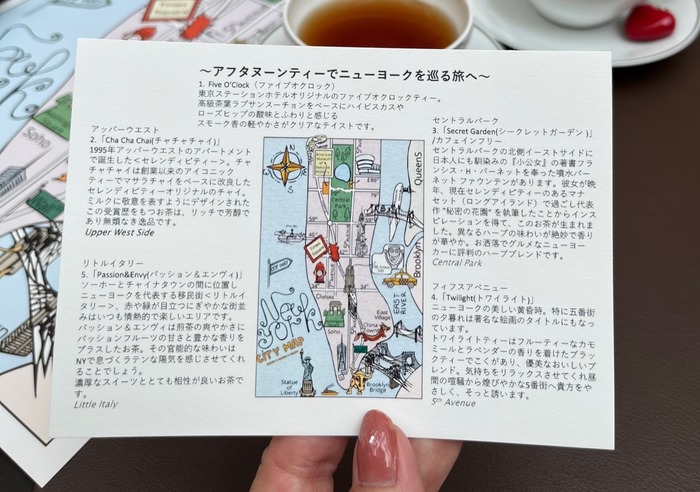 ～アフタヌーンティーでニューヨークを巡る旅へ～
1. Five O'Clock（ファイブオクロック）
東京ステーションホテルオリジナルのファイブオクロックティー。
高級茶葉ラプサンスーチョンをベースにハイビスカスや
ローズヒップの酸味とふわりと感じる
スモーク香の軽やかさがクリアなテイストです。
アッパーウエスト
2.「Cha Cha Chai(チャチャチャイ)」
1995年アッパーウエストのアパートメント
で誕生した<セレンディピティー>。チャ
チャチャイは創業以来のアイコニック
ティーでマサラチャイをベースに改良した
セレンディピティーオリジナルのチャイ。
ミルクに敬意を表すようにデザインされた
この受賞歴をもつお茶は、リッチで芳醇で
あり無類なき逸品です。
Upper West Side
リトルイタリー
5.「Passion&Envy(パッション＆エンヴィ)」
ソーホーとチャイナタウンの間に位置し
ニューヨークを代表する移民街<リトルイ
タリー>、赤や緑が目立つにぎやかな街並
みはいつも情熱的で楽しいエリアです。
パッション＆エンヴィは煎茶の爽やかさに
パッションフルーツの甘さと豊かな香りを
プラスしたお茶。その官能的な味わいは
NYで息づくラテンな陽気を感じさせてくれ
ることでしょう。
濃厚なスイーツととても相性が良いお茶で
す。
Little Italy
セントラルパーク
3.「Secret Garden(シークレットガーデン)」
/カフェインフリー
セントラルパークの北側イーストサイドに
日本人にも馴染みの『小公女』の著書フラ
ンシス・H・バーネットを奉った噴水バー
ネット ファウンテンがあります。彼女が晩
年、現在セレンディピティのあるマナ
セット（ロングアイランド）で過ごし代表
作 "秘密の花園" を執筆したことからインス
ピレーションを得て、このお茶が生まれま
した。異なるハーブの味わいが絶妙で香り
が華やか。お洒落でグルメなニューヨー
カーに評判のハーブブレンドです。
Central Park
フィフスアベニュー
4.「Twilight(トワイライト)」
ニューヨークの美しい黄昏時。特に五番街
の夕暮れは著名な絵画のタイトルにもなっ
ています。
トワイライトティーはフルーティなカモ
ミールとラベンダーの香りを着けたブラッ
クティーでこくがあり、優美なおいしいブ
レンド。気持ちをリラックスさせてくれ昼
間の喧騒から煌びやかな5番街へ貴方をや
さしく、そっと誘います。
5th Avenue
N
W
E
S
Central
Park
Queens
Brooklyn
EAST
RIVER
Chelsea
Soho
East
Village
China
Town
New
York
CITY MAP
Statue
of
Liberty
Brooklyn
Bridge
Soho